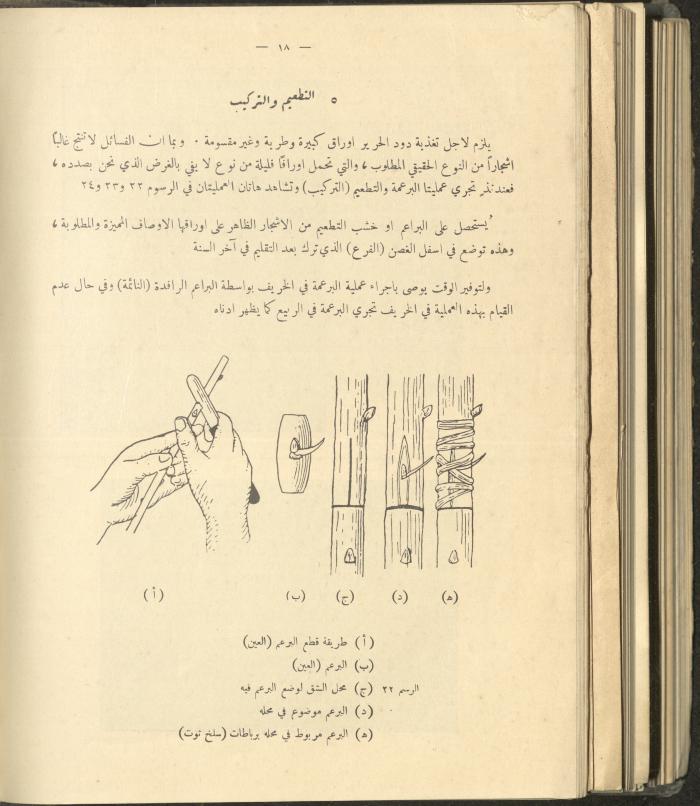 — ١٨ —
٥ التطعيم والتركيب
يلزم لاجل تغذية دود الحرير اوراق كبيرة وطرية وغير مقسومة ٠ وبما ان الفسائل لا تنتج غالبًا
اشجاراً من النوع الحقيقي المطلوب ، والتي تحمل اوراقًا قليلة من نوع لا يفي بالغرض الذي نحن بصدده ،
فعندئذٍ تجري عمليتا البرعمة والتطعيم (التركيب) وتشاهد هاتان العمليتان في الرسوم ٢٢ و٢٣ و٢٤
يُستحصل على البراعم او خشب التطعيم من الاشجار الظاهر على اوراقها الاوصاف المميزة والمطلوبة ،
وهذه توضع في اسفل الغصن (الفرع) الذي ترك بعد التقليم في آخر السنة
ولتوفير الوقت يوصى باجراء عملية البرعمة في الخريف بواسطة البراعم الراقدة (النائمة) وفي حال عدم
القيام بهذه العملية في الخريف تجري البرعمة في الربيع كما يظهر ادناه
(أ) (ب) (ج) (د) (ه)
(أ) طريقة قطع البرعم (العين)
(ب) البرعم (العين)
الرسم ٢٢ (ج) محل الشق لوضع البرعم فيه
(د) البرعم موضوع في محله
(ه) البرعم مربوط في محله برباطات (سلخ توت)